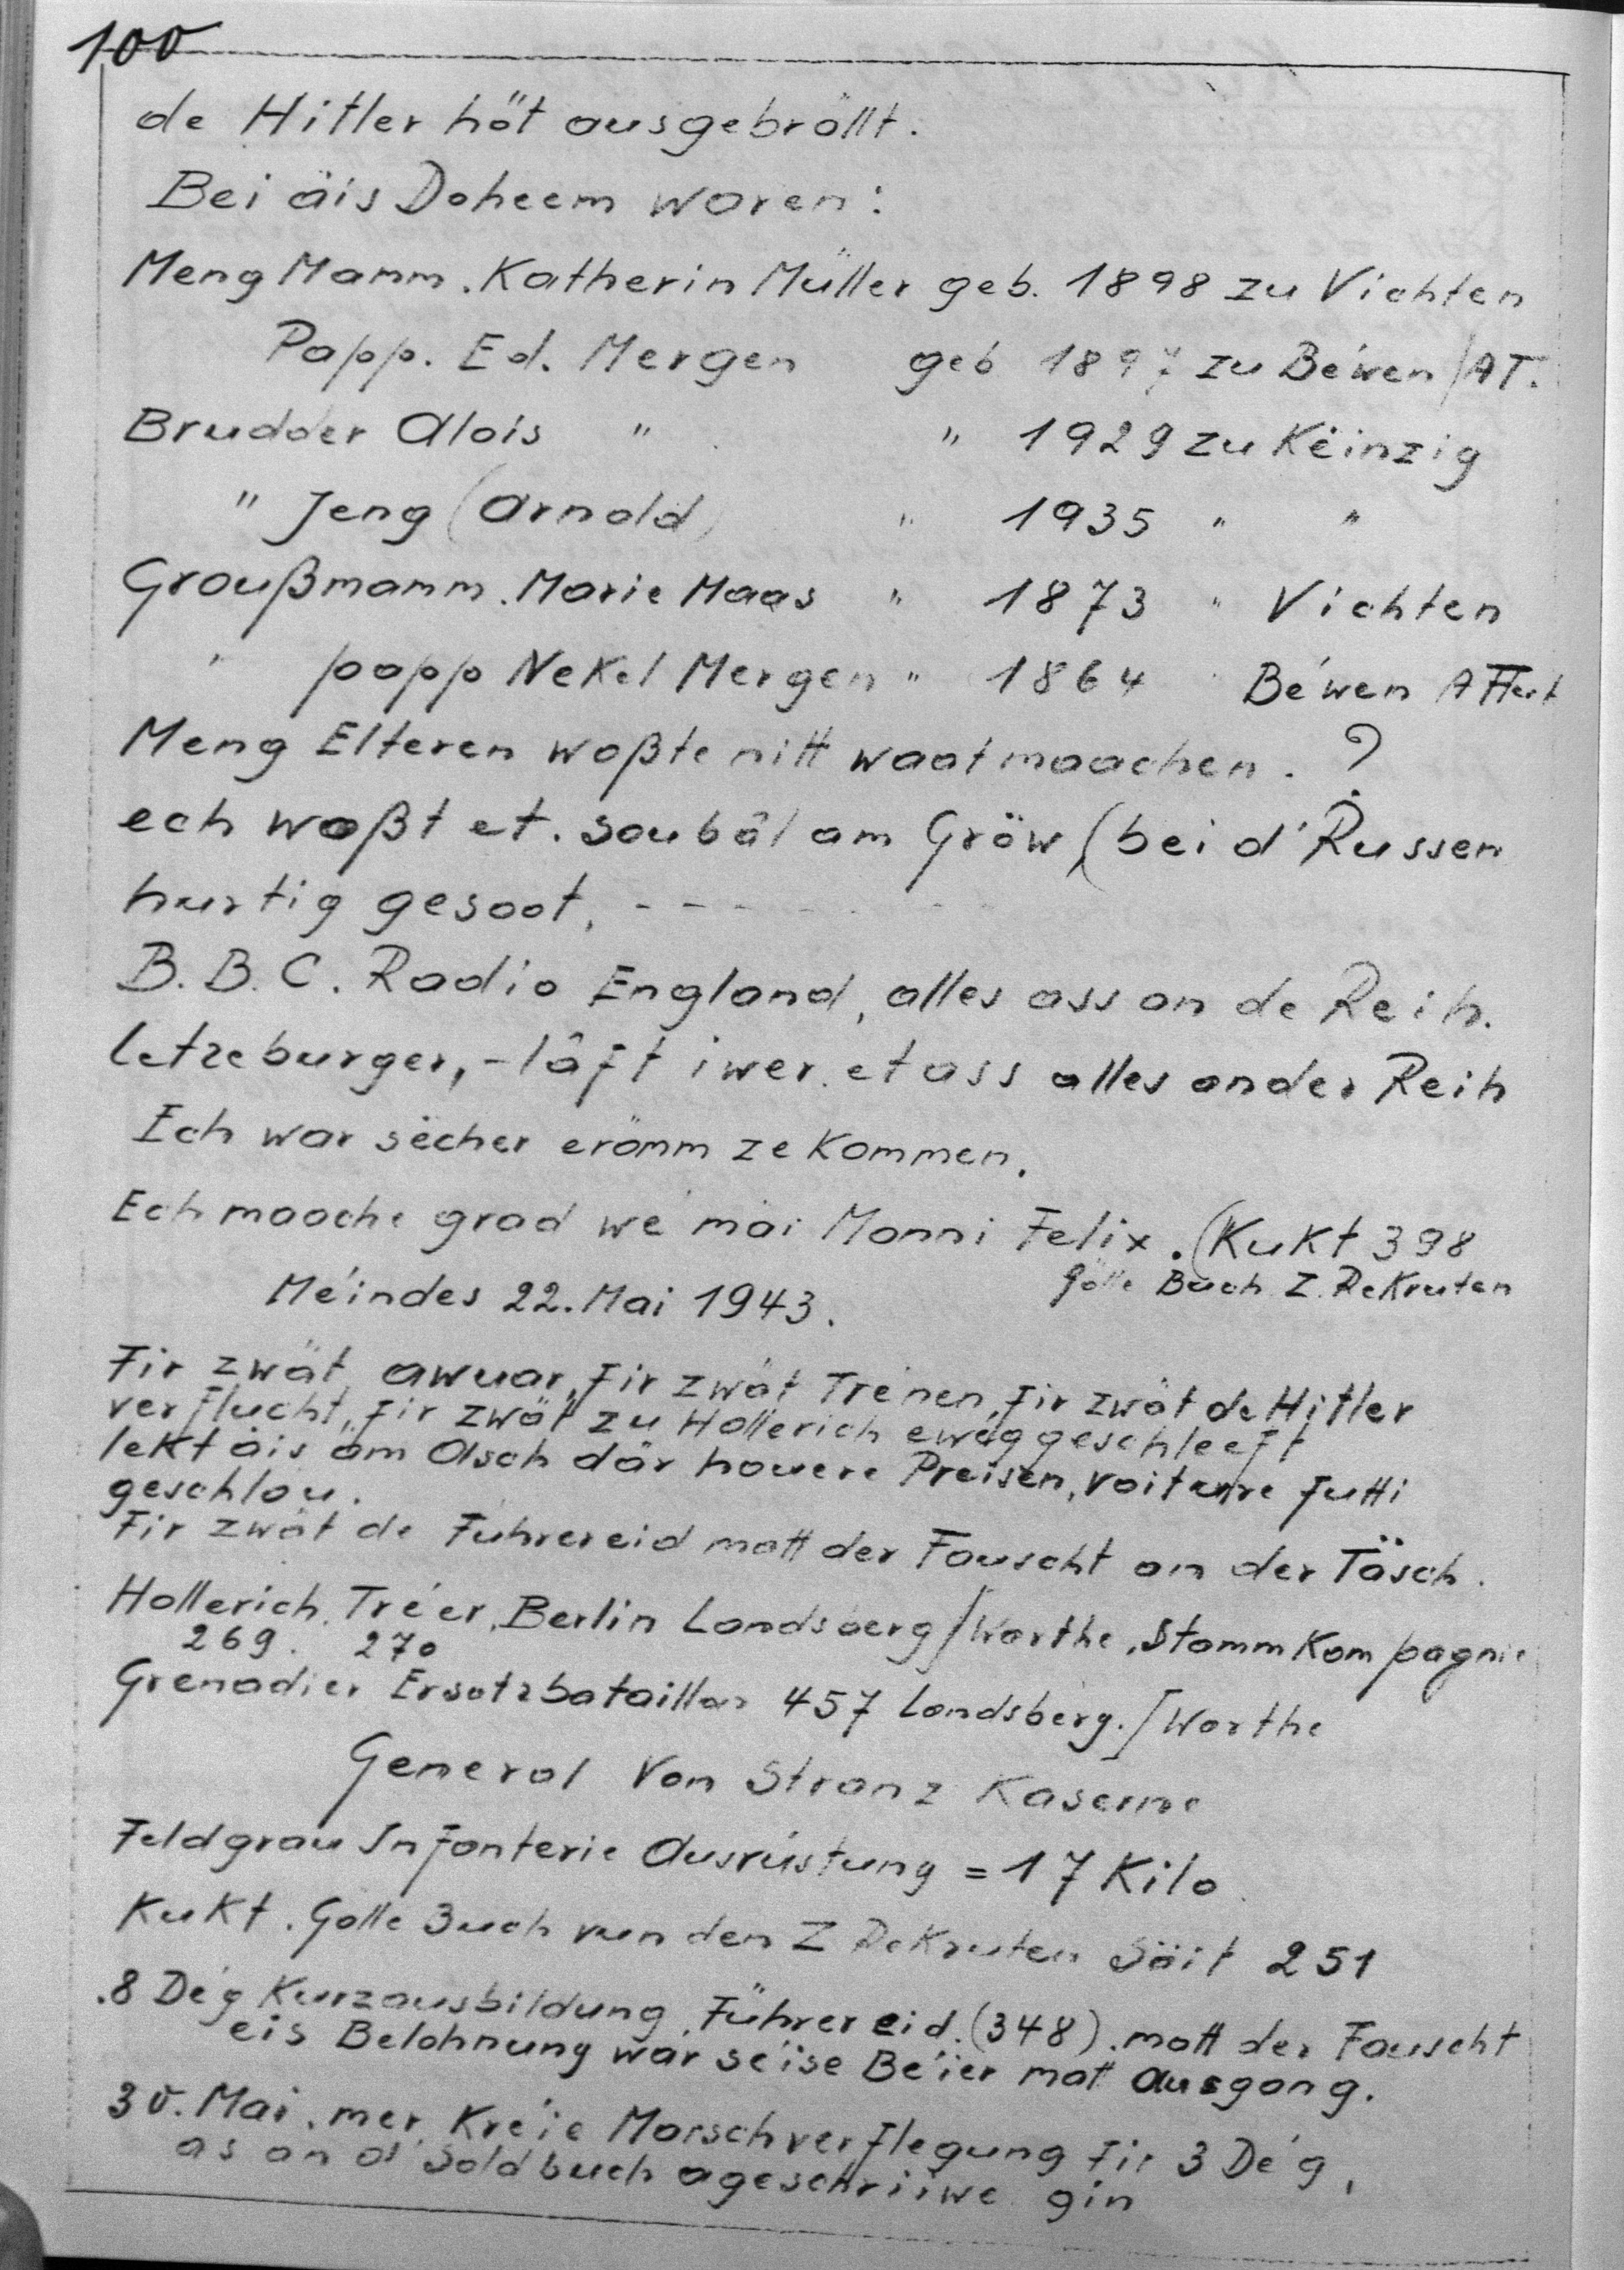 100
de Hitler höt ausgebröllt.
Bei äis Doheem woren:
Meng Mamm. Katherin Müller geb. 1898 zu Vichten
Papp. Ed. Mergen geb 1897 zu Béwen/AT.
Brudder Alois " " 1929 zu Këinzig
" Jeng (Arnold) " 1935 " "
Groußmamm. Marie Maas " 1873 " Vichten
" papp Nekel Mergen " 1864 " Béwen Attert
Meng Elteren woßte nitt waat maachen. ?
ech woßt et. soubâl am Gröw, (bei d'Russen
hurtig gesoot, - - - - - - - -
B.B.C. Radio England, alles ass an de Reih.
Letzeburger, - lâft iwer. et ass alles an der Reih
Ech war sëcher erömm ze kommen.
Ech maache grad wé mäi Monni Felix. (Kukt 398
Gölle Buch Z. Rekruten
Méindes 22. Mai 1943.
Fir zwät awuar, fir zwät Trénen, fir zwät de Hitler
verflucht, fir zwät zu Hollerich ewég geschleeft
lekt äis äm Asch där houere Preisen, voiture futti
geschlou.
Fir zwät de Führereid matt der Fauscht an der Täsch.
Hollerich, Tréer, Berlin Landsberg/Warthe, Stammkompagnie
269. 270
Grenadier Ersatzbataillon 457 Landsberg./Warthe
General Von Stranz Kaserne
Feldgrau Infanterie Ausrüstung = 17 Kilo.
Kukt. Gölle Buch vun den Z Rekruten Säit 251
.8 Dég Kurzausbildung, Führereid. (348). matt der Fauscht
eis Belohnung war séise Béier mat Ausgang.
30. Mai. mer kréie Marschverflegung fir 3 Dég,
as an d'Soldbuch ageschriiwe gin